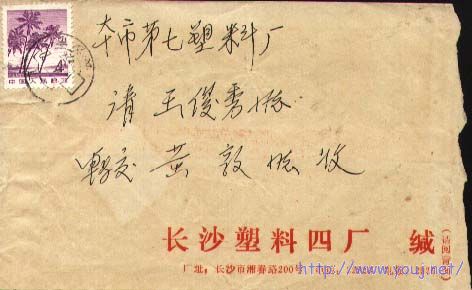 4
中国人民邮政
市第七塑料厂
请 王俊秀
转交 黄敦 收
长沙塑料四厂 缄
厂址:长沙市湘春路200号
http://www.youj.net/